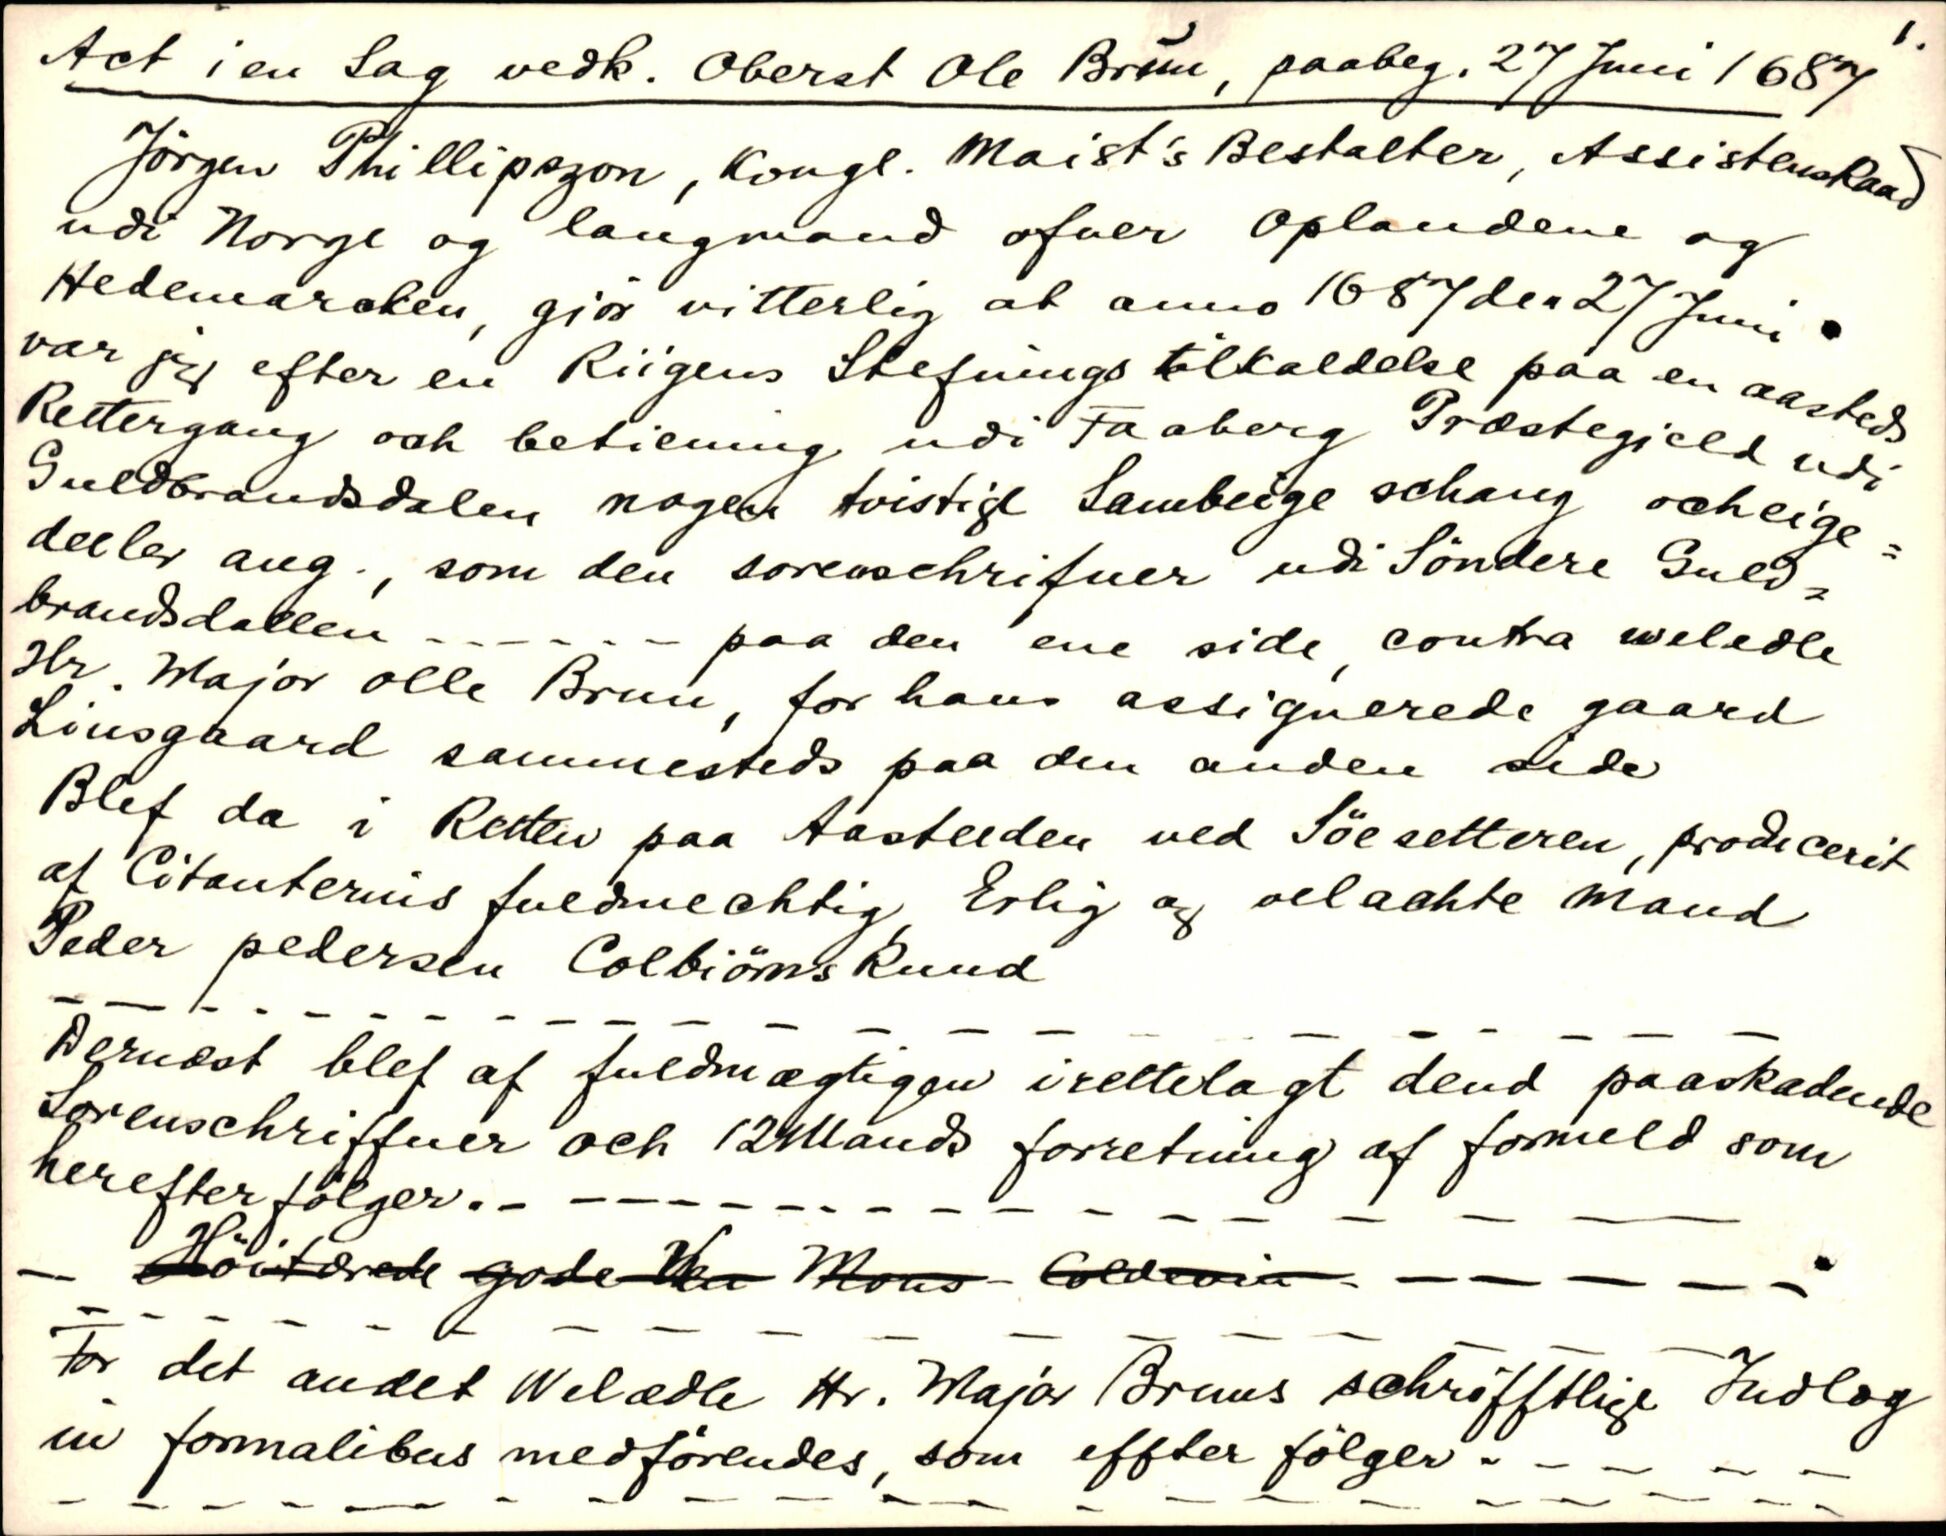 1.
Act i en Sag vedk. Oberst Ole Brun, paabeg. 27 Juni 1687
Jörgen Phillipszon, Kongl. Maist's Bestalter, Assistensraad
udi Norge og laugmand ofver Oplandene og
Hedemarcken, giör vitterlig at anno 1687 den 27 Juni
var jeg efter en Riigens Stefnings tilkaldelse paa en aasteds
Rettergang och betiening udi Faaberg Præstegield udi
Guldbrandsdalen nogen tvistige Sambeige schaug och eige=
deeler ang., som den sorenschrifuer udi Söndere Guld=
brandsdallen ------ paa den ene side, contra weledle
Hr. Major Olle Brun, for hans assignerede gaard
Linsgaard sammesteds paa den anden side
Blef da i Retten paa Aasteeden ved Söesetteren, producerit
af Citanternis fuldmechtig, Erlig og velachte Mand
Peder pedersen Colbiörnsrund
Dernæst blef af fuldmægtigen irettelagt dend paaskadende
Sorenschriffuer och 12 Mands forretning af formeld som
herefter fölger. - - - - - -
- Höitærede gode Ven Mons Coldevin - - - - -
For det andet Welædle Hr. Major Bruns schriftlige Indlæg
in formalibus medförendes, som effter fölger - - - - -